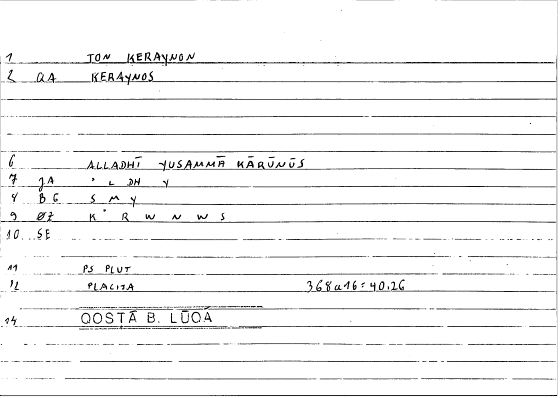 1 TON KERAYNON
2 QA KERAYNOS
6 ALLADHĪ YUSAMMĀ KĀRŪNŪS
7 JA ʾ L DH Y
8 BG S M Y
9 ØZ K ʾ R W N W S
10 SE
11 PS PLUT
12 PLACITA 368a16=40,26
14 QOSṬĀ B. LŪQĀ